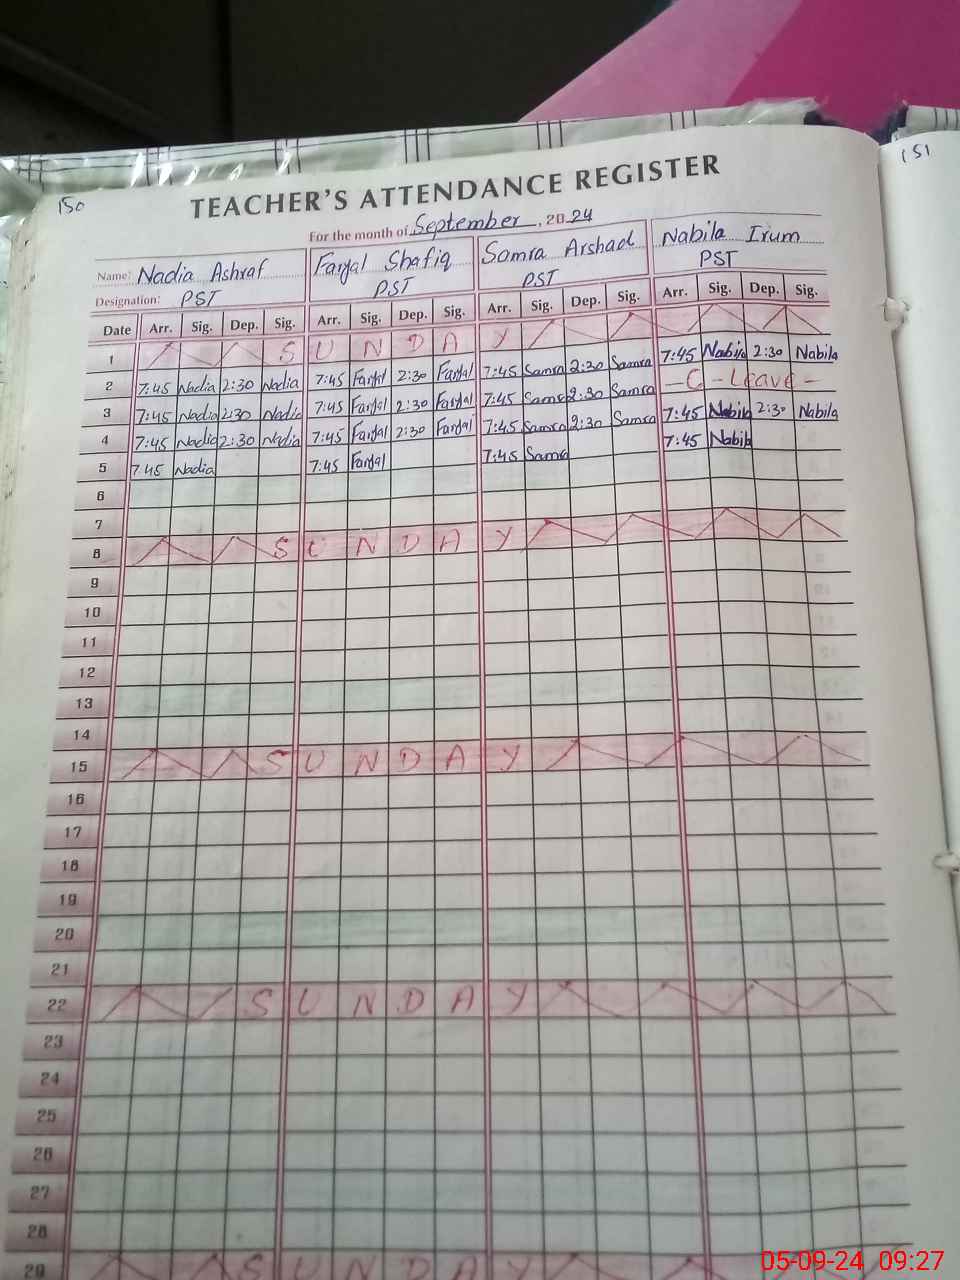 150
151
TEACHER'S ATTENDANCE REGISTER
For the month of September, 2024
Name: Nadia Ashraf Faryal Shafiq Samra Arshad Nabila Irum
Designation: PST PST PST PST
Date Arr. Sig. Dep. Sig. Arr. Sig. Dep. Sig. Arr. Sig. Dep. Sig. Arr. Sig. Dep. Sig.
1 S U N D A Y
2 7:45 Nadia 2:30 Nadia 7:45 Faryal 2:30 Faryal 7:45 Samra 2:30 Samra 7:45 Nabila 2:30 Nabila
3 7:45 Nadia 2:30 Nadia 7:45 Faryal 2:30 Faryal 7:45 Samra 2:30 Samra - C - Leave -
4 7:45 Nadia 2:30 Nadia 7:45 Faryal 2:30 Faryal 7:45 Samra 2:30 Samra 7:45 Nabila 2:30 Nabila
5 7:45 Nadia 7:45 Faryal 7:45 Samra 7:45 Nabila
6
7
8 S U N D A Y
9
10
11
12
13
14
15 S U N D A Y
16
17
18
19
20
21
22 S U N D A Y
23
24
25
26
27
28
29 S U N D A Y
05-09-24 09:27